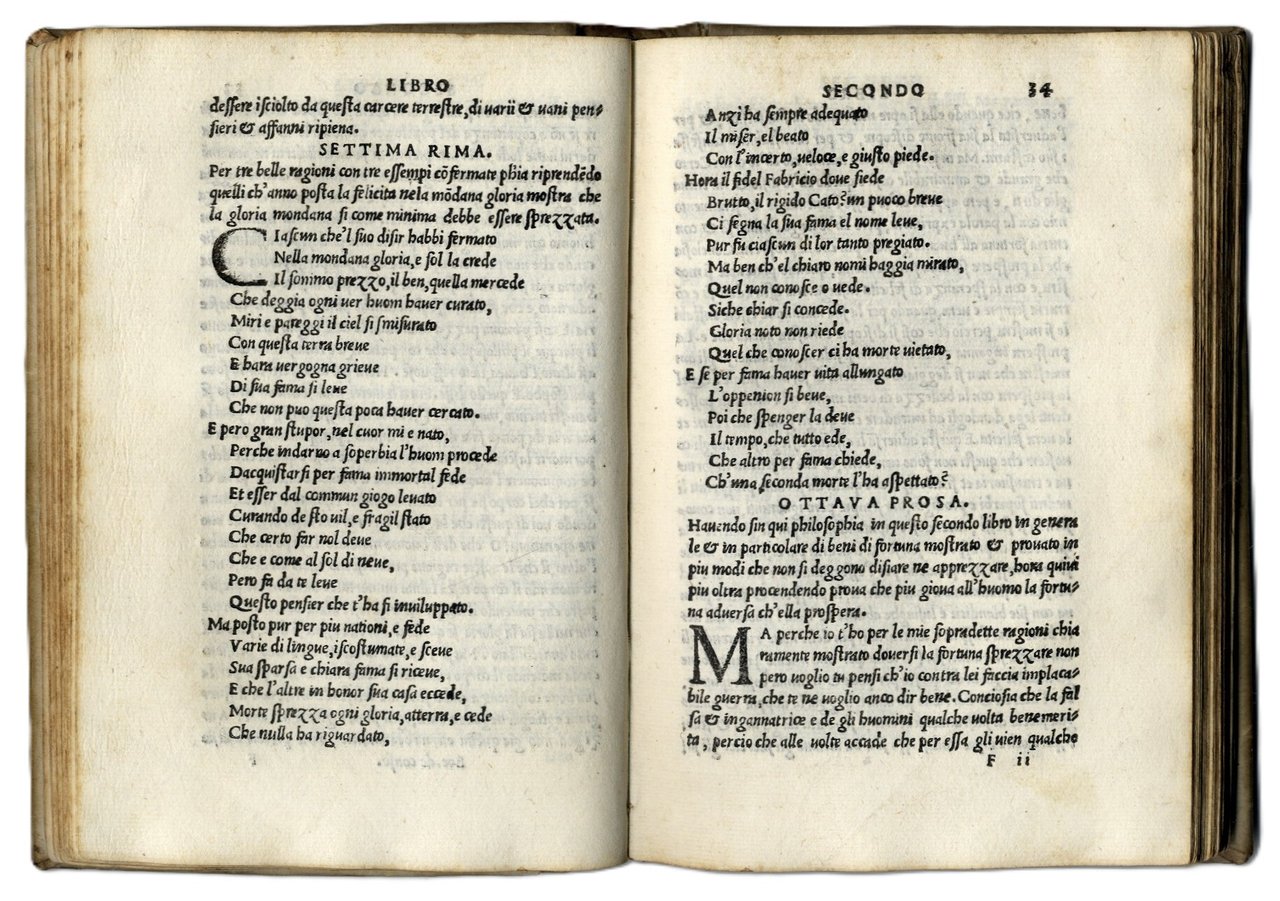 LIBRO
dessere isciolto da questa carcere terrestre, di uarii & uani pen-
sieri & affanni ripiena.
SETTIMA RIMA.
Per tre belle ragioni con tre essempi cōfermate phia riprendēdo
quelli ch'anno posta la felicita nela mōdana gloria mostra che
la gloria mondana si come minima debbe essere sprezzata.
CIascun che'l suo disir habbi fermato
Nella mondana gloria, e sol la crede
Il sommo prezzo, il ben, quella mercede
Che deggia ogni uer huom hauer curato,
Miri e pareggi il ciel si smisurato
Con questa terra breue
E hara uergogna grieue
Di sua fama si leue
Che non puo questa poca hauer cercato.
E pero gran stupor, nel cuor mi e nato,
Perche indarno a soperbia l'huom procede
Dacquistarsi per fama immortal fede
Et esser dal commun giogo leuato
Curando de sto uil, e fragil stato
Che certo far nol deue
Che e come al sol di neue,
Pero fa da te leue
Questo pensier che t'ha si inuiluppato.
Ma posto pur per piu nationi, e fede
Varie di lingue, iscostumate, e sceue
Sua sparsa e chiara fama si riceue,
E che l'altre in honor sua casa eccede,
Morte sprezza ogni gloria, atterra, e cede
Che nulla ha riguardato,
Boe. de conso. F
SECONDO 34
Anzi ha sempre adequato
Il miser, el beato
Con l'incerto, ueloce, e giusto piede.
Hora il fidel Fabricio doue siede
Brutto, il rigido Cato? un puoco breue
Ci segna la sua fama el nome leue,
Pur fu ciascun di lor tanto pregiato.
Ma ben ch'el chiaro nomi haggia mirato,
Quel non conosce o uede.
Siche chiar si concede.
Gloria noto non riede
Quel che conoscer ci ha morte uietato,
E se per fama hauer uita allungato
L'oppenion si beue,
Poi che spenger la deue
Il tempo, che tutto ede,
Che altro per fama chiede,
Ch'una seconda morte l'ha aspettato?
OTTAVA PROSA.
Hauendo sin qui philosophia in questo secondo libro in genera
le & in particolare di beni di fortuna mostrato & prouato in
piu modi che non si deggono disiare ne apprezzare, hora quiui
piu oltra procendendo proua che piu gioua all'huomo la fortu-
na aduersa ch'ella prospera.
MA perche io t'ho per le mie sopradette ragioni chia
ramente mostrato douersi la fortuna sprezzare non
pero uoglio tu pensi ch'io contra lei faccia implaca-
bile guerra, che te ne uoglio anco dir bene. Conciosia che la fal
sa & ingannatrice e de gli huomini qualche uolta benemeri-
ta, percio che alle uolte accade che per essa gli uien qualche
F ii